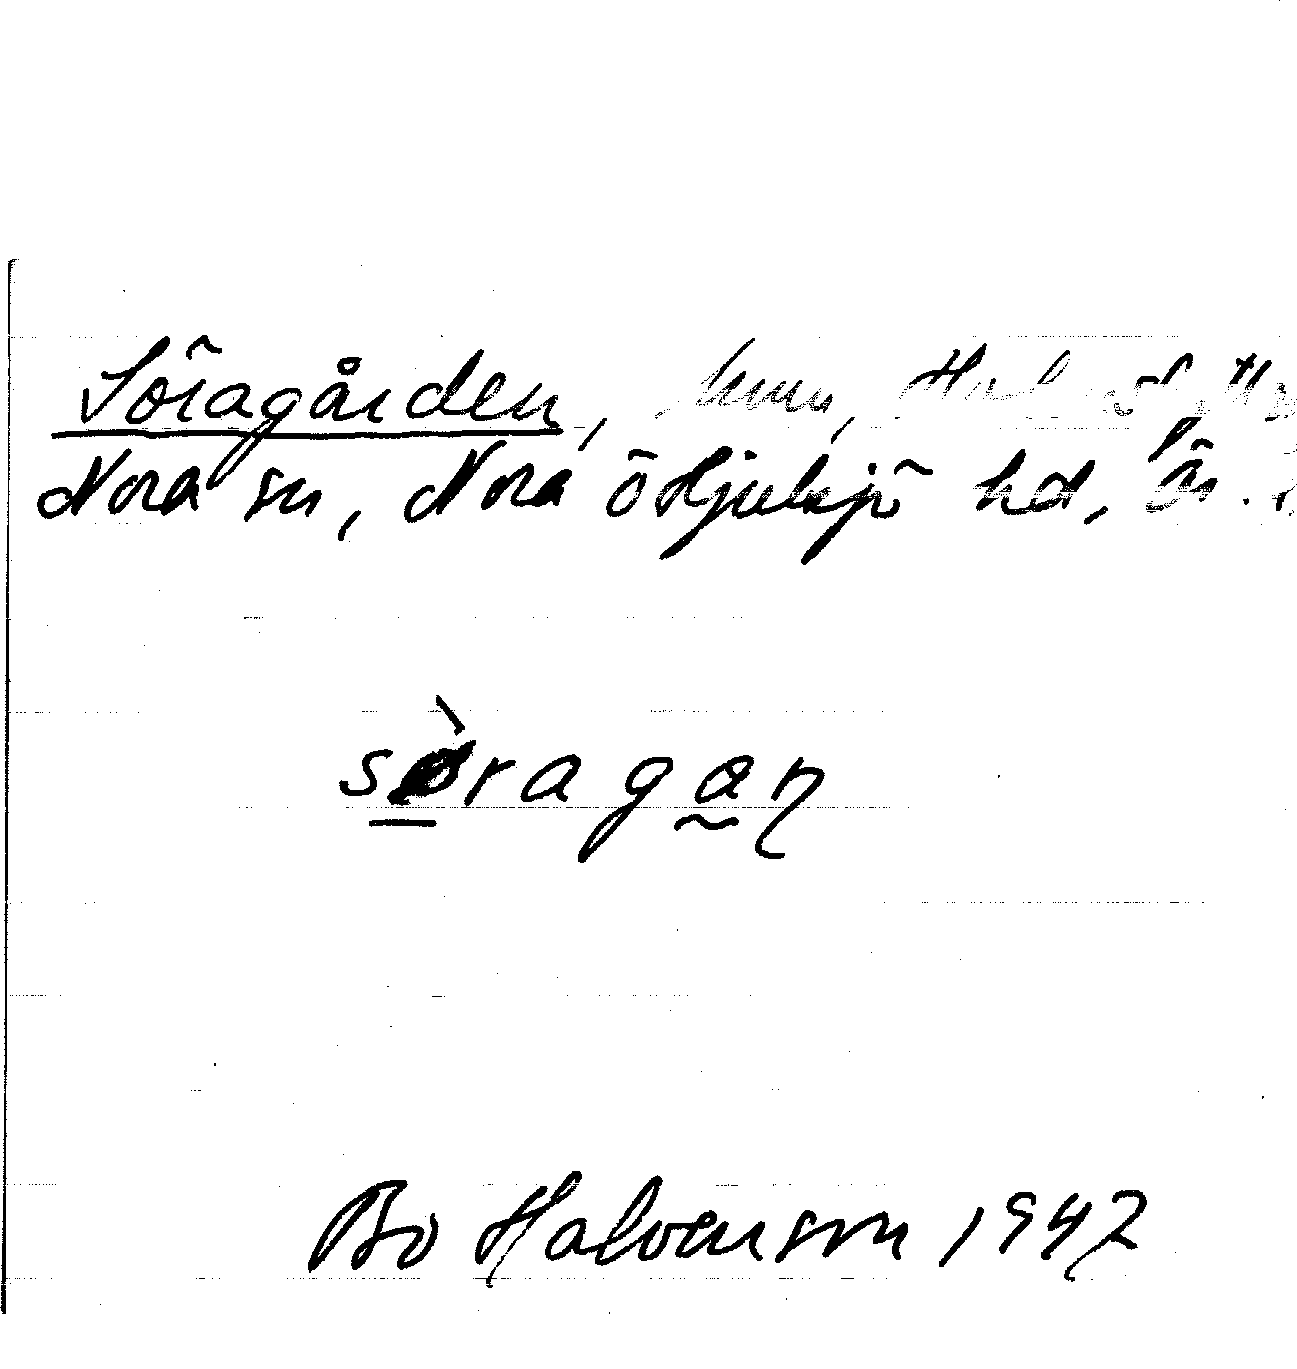 Söragården, hmn,
Nora sn, Nora o Hjulsjö hd, Ör.
söragaṇ
Bo Halvarson 1942